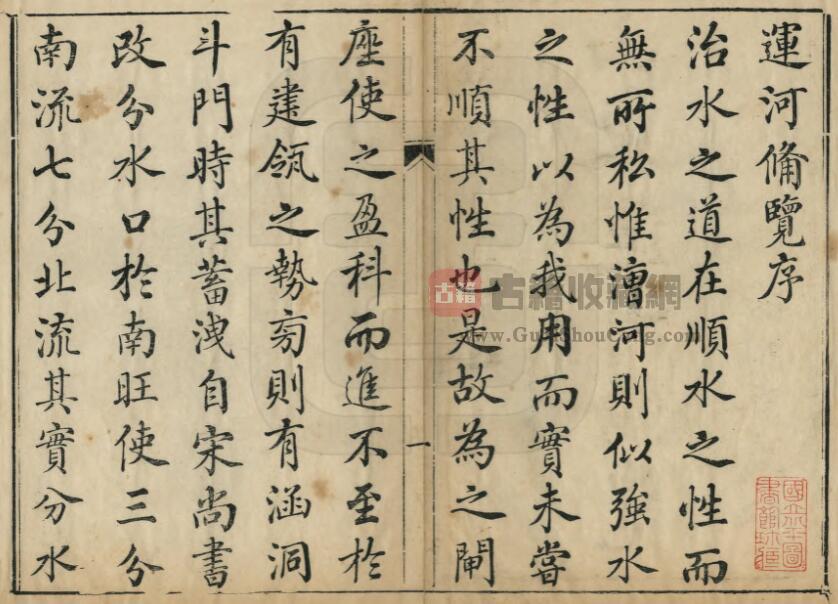 運河俻覽序
治水之道在順水之性而
無所私惟漕河則似強水
之性以為我用而實未嘗
不順其性也是故為之閘
一
座使之盈科而進不至於
有建瓴之勢旁則有涵洞
斗門時其蓄洩自宋尚書
改分水口於南旺使三分
南流七分北流其實分水
古籍
古籍收藏網
www.GuJiShouCang.com